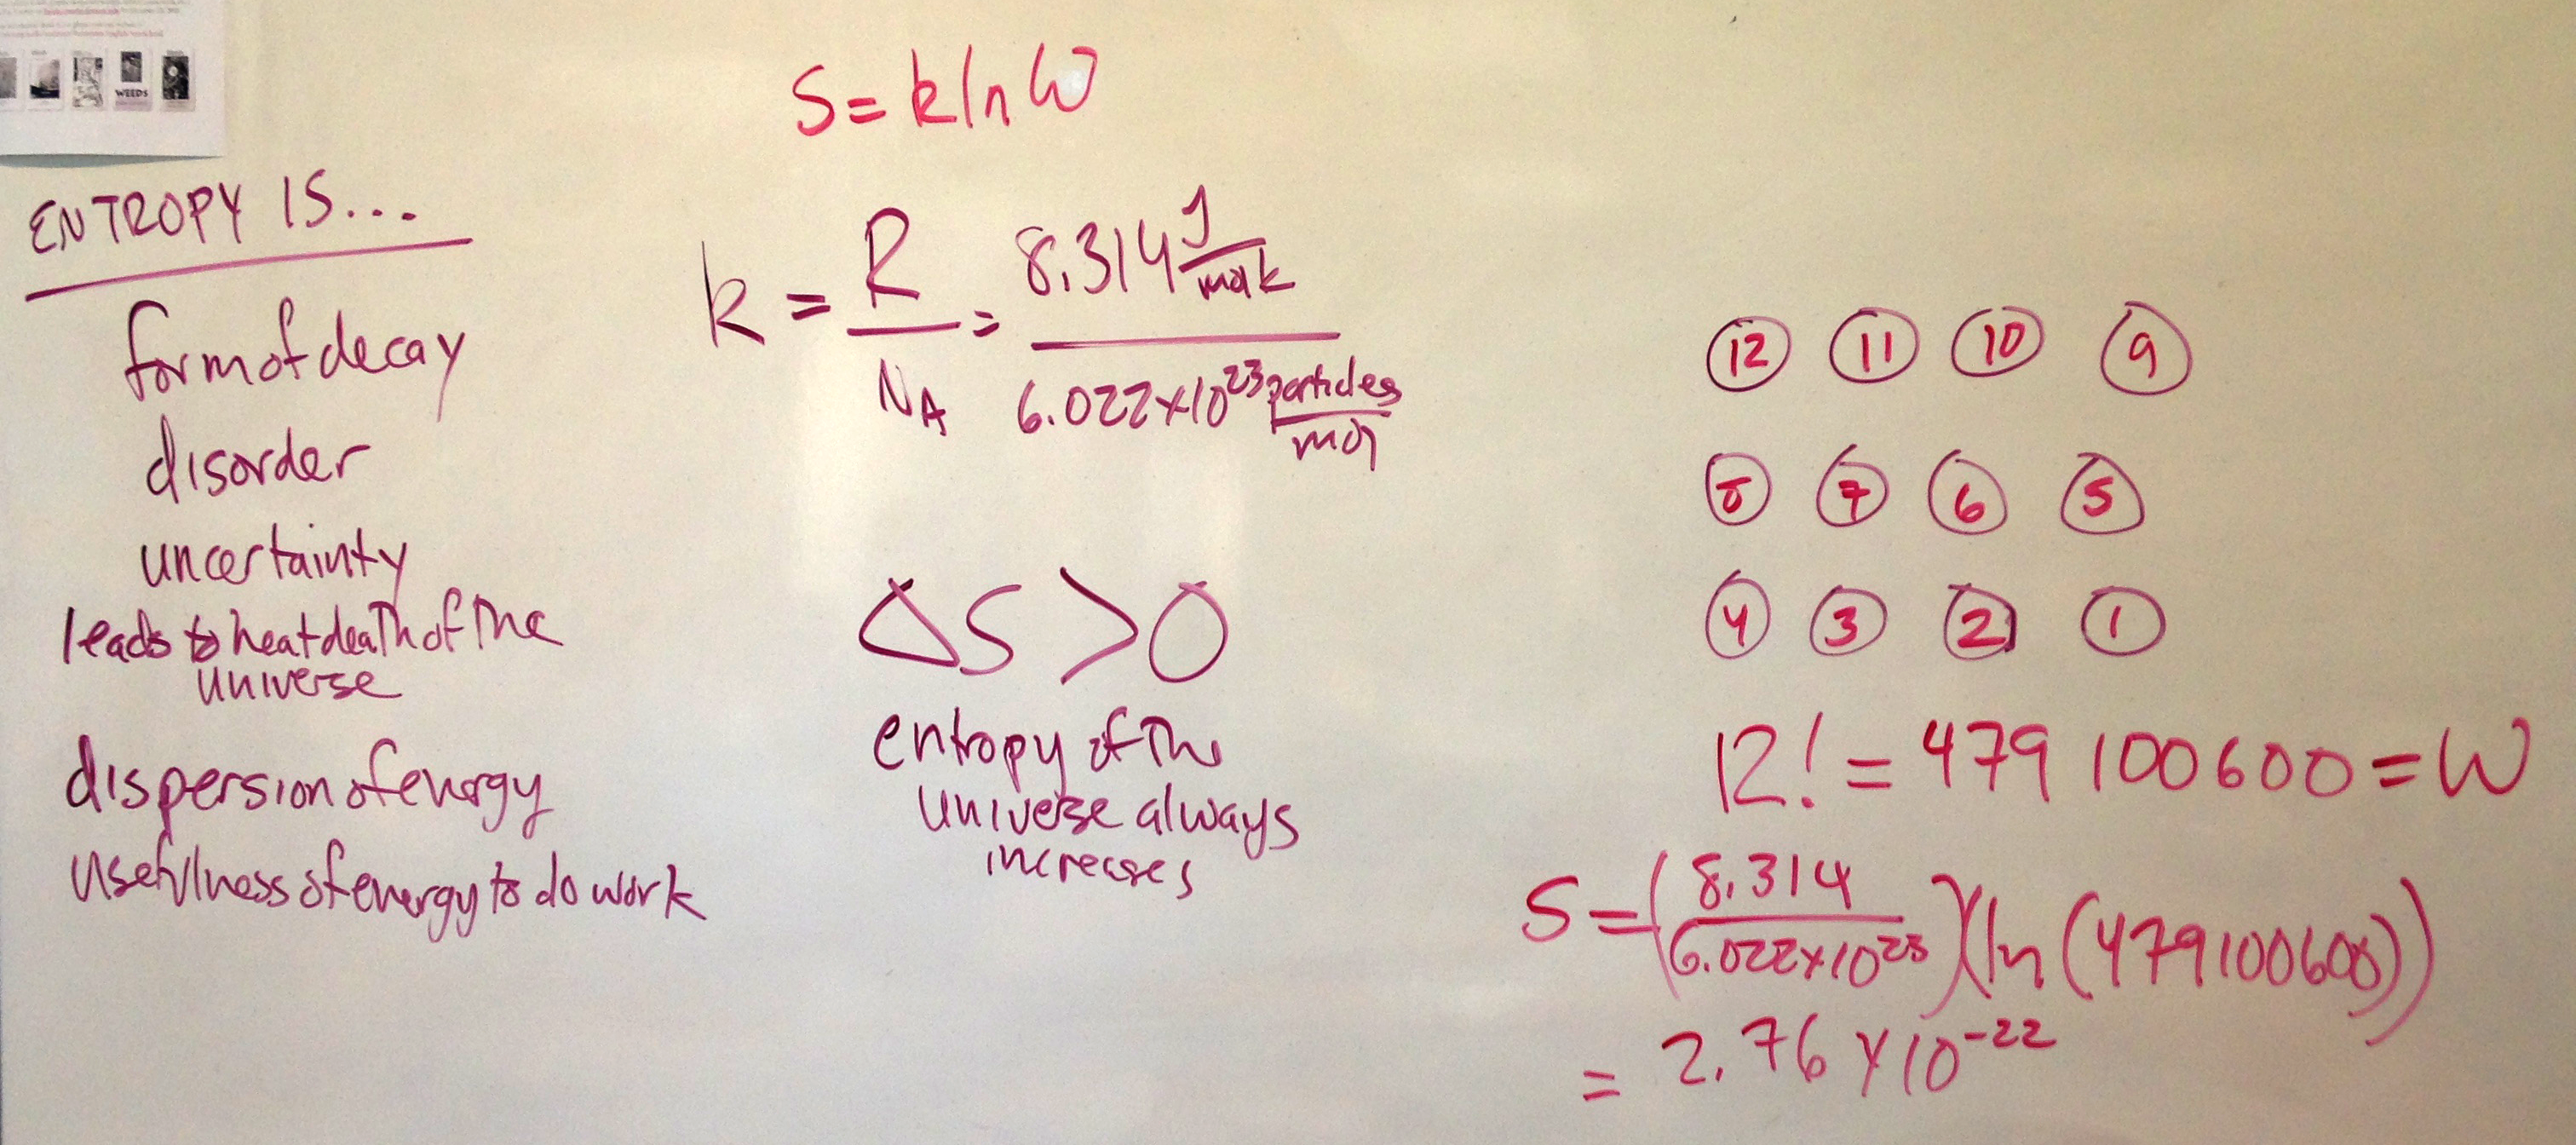 WEEDS
S = k ln W
ENTROPY IS...
form of decay
disorder
uncertainty
leads to heat death of the
universe
dispersion of energy
usefulness of energy to do work
k = R/N_A = 8.314 J/mol k / 6.022 x 10^23 particles/mol
ΔS > 0
entropy of the
universe always
increases
12 11 10 9
8 7 6 5
4 3 2 1
12! = 479 100 600 = W
S = (8.314 / 6.022 x 10^23)(ln (479100600))
= 2.76 x 10^-22